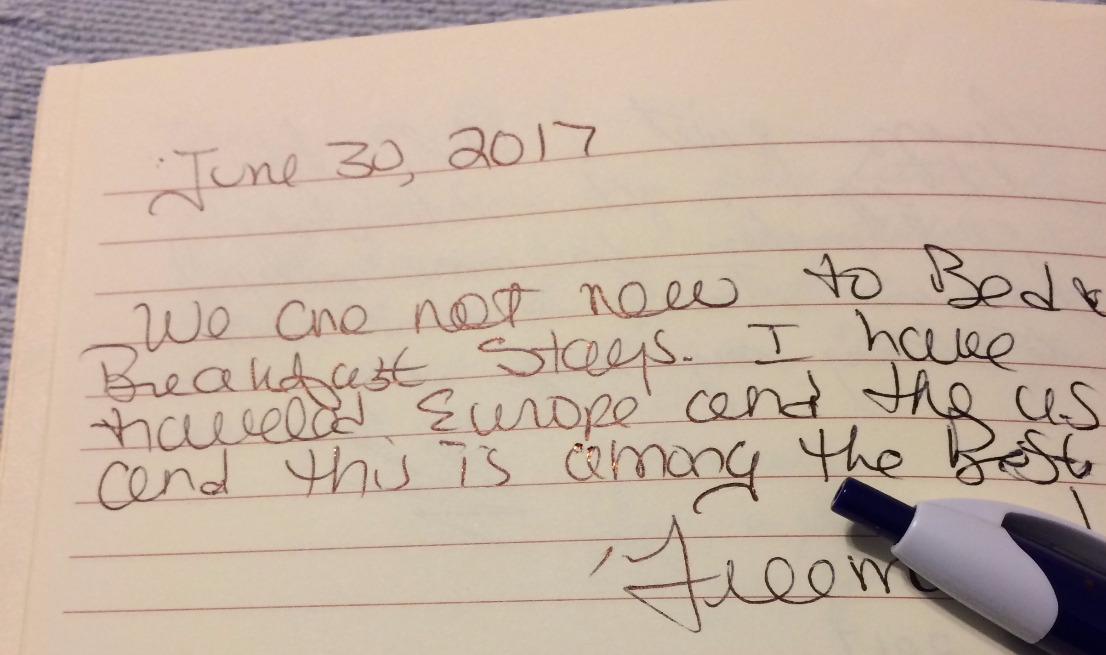 June 30, 2017
We are not new to Bed &
Breakfast Stays. I have
traveled Europe and the US
and this is among the Best